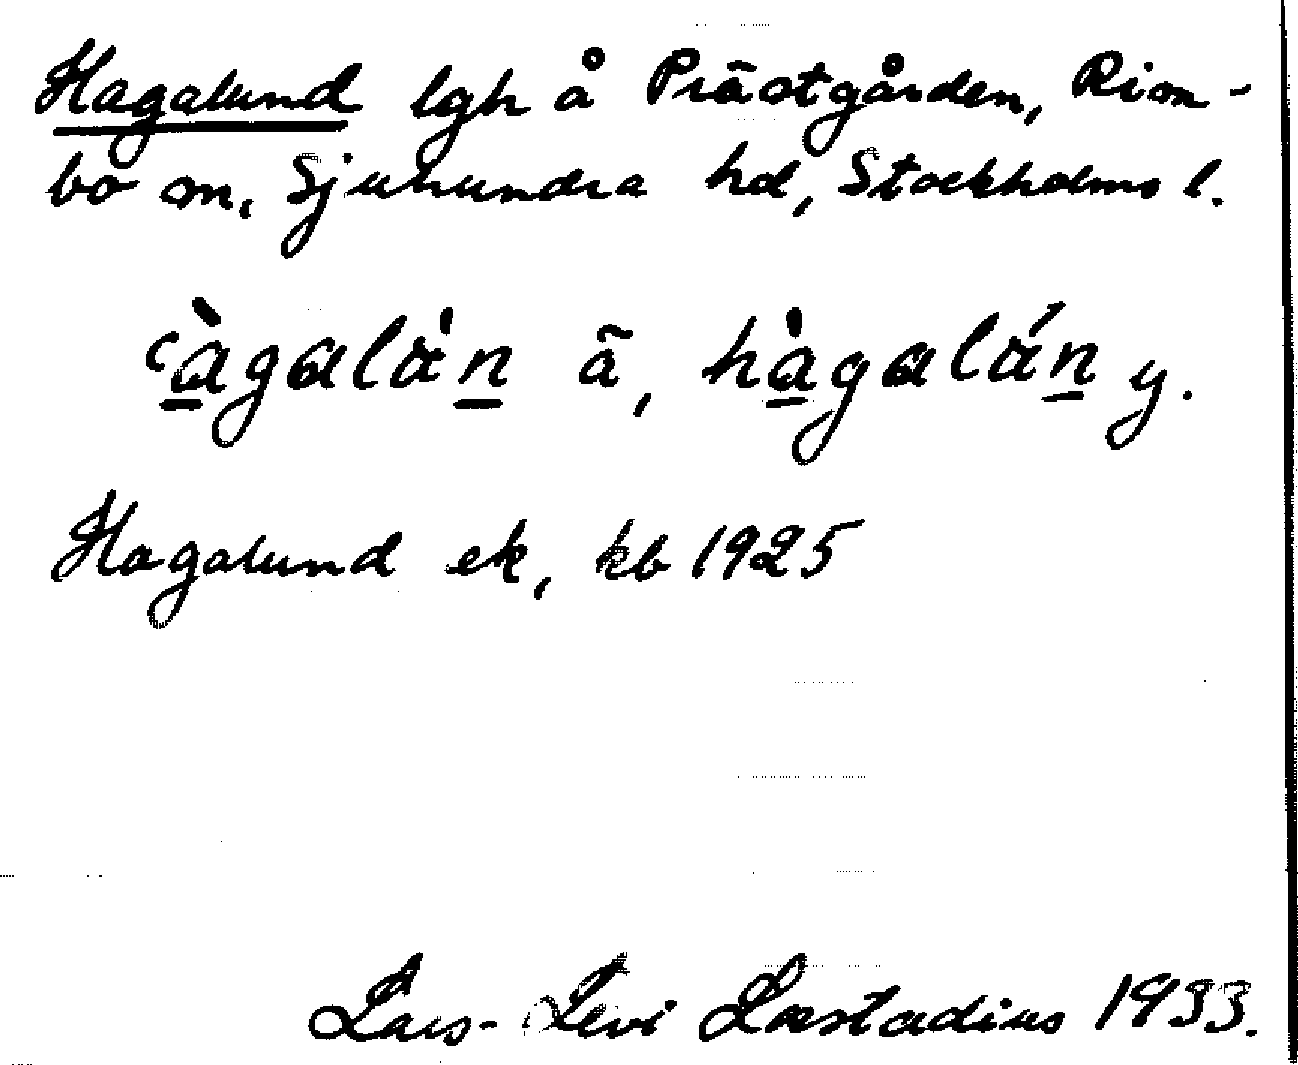 Hagalund lgh å Prästgården, Rim-
bo sn, Sjuhundra hd, Stockholms l.
‘àgalàn ä, hàgalán y.
Hagalund ek, kb 1925
Lars-Levi Læstadius 1933.